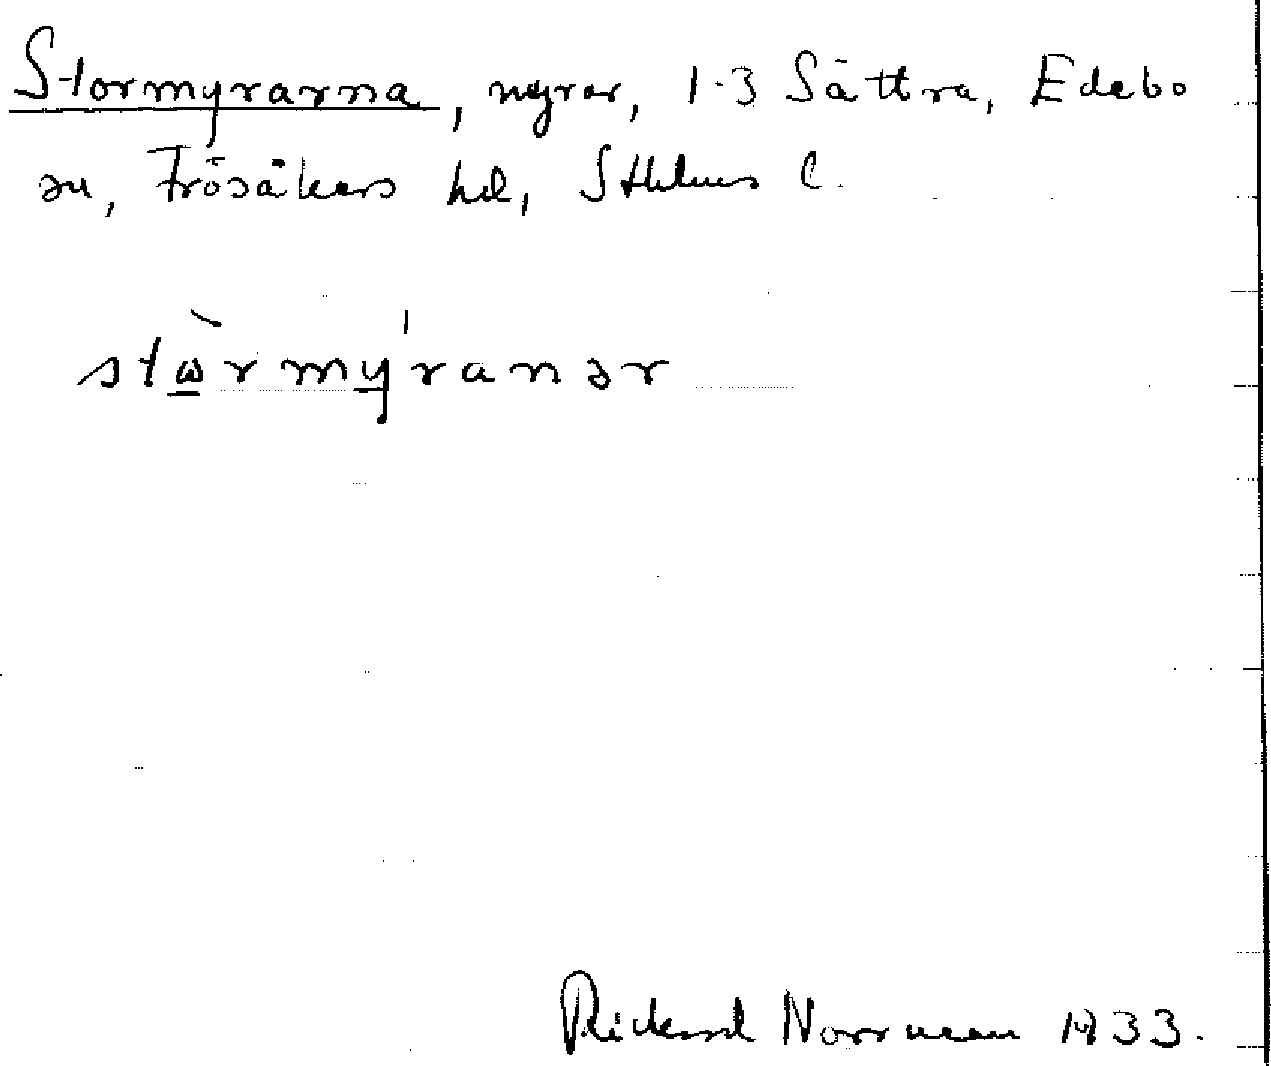 Stormyrarna, myrar, 1-3 Sättra, Edebo
sn, Frösåkers hd, Sthlms l.
stὼrmýranər
Rickard Norrman 1933.